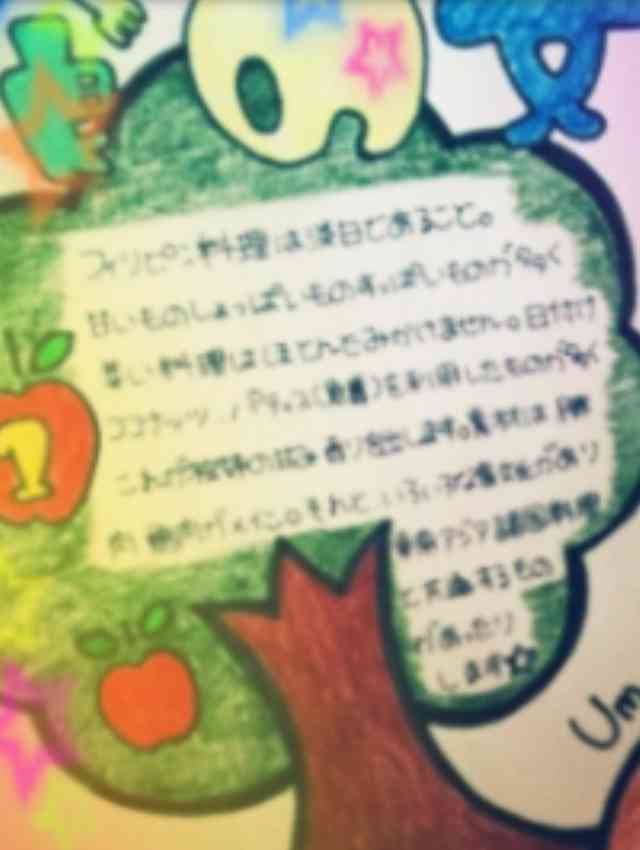 フィリピン料理は淡白であること。
甘いものしょっぱいものすっぱいものが多く
料理はほとんどみかけません。味付け
ココナッツ、パティス(魚醤)を利用したものが多く
これが独特の 香り出します。素材は豚
肉 鶏肉がメイン。それと、いろいろな食文化があり
東南アジア諸国料理
と共通するもの
があったり
します☆
Um